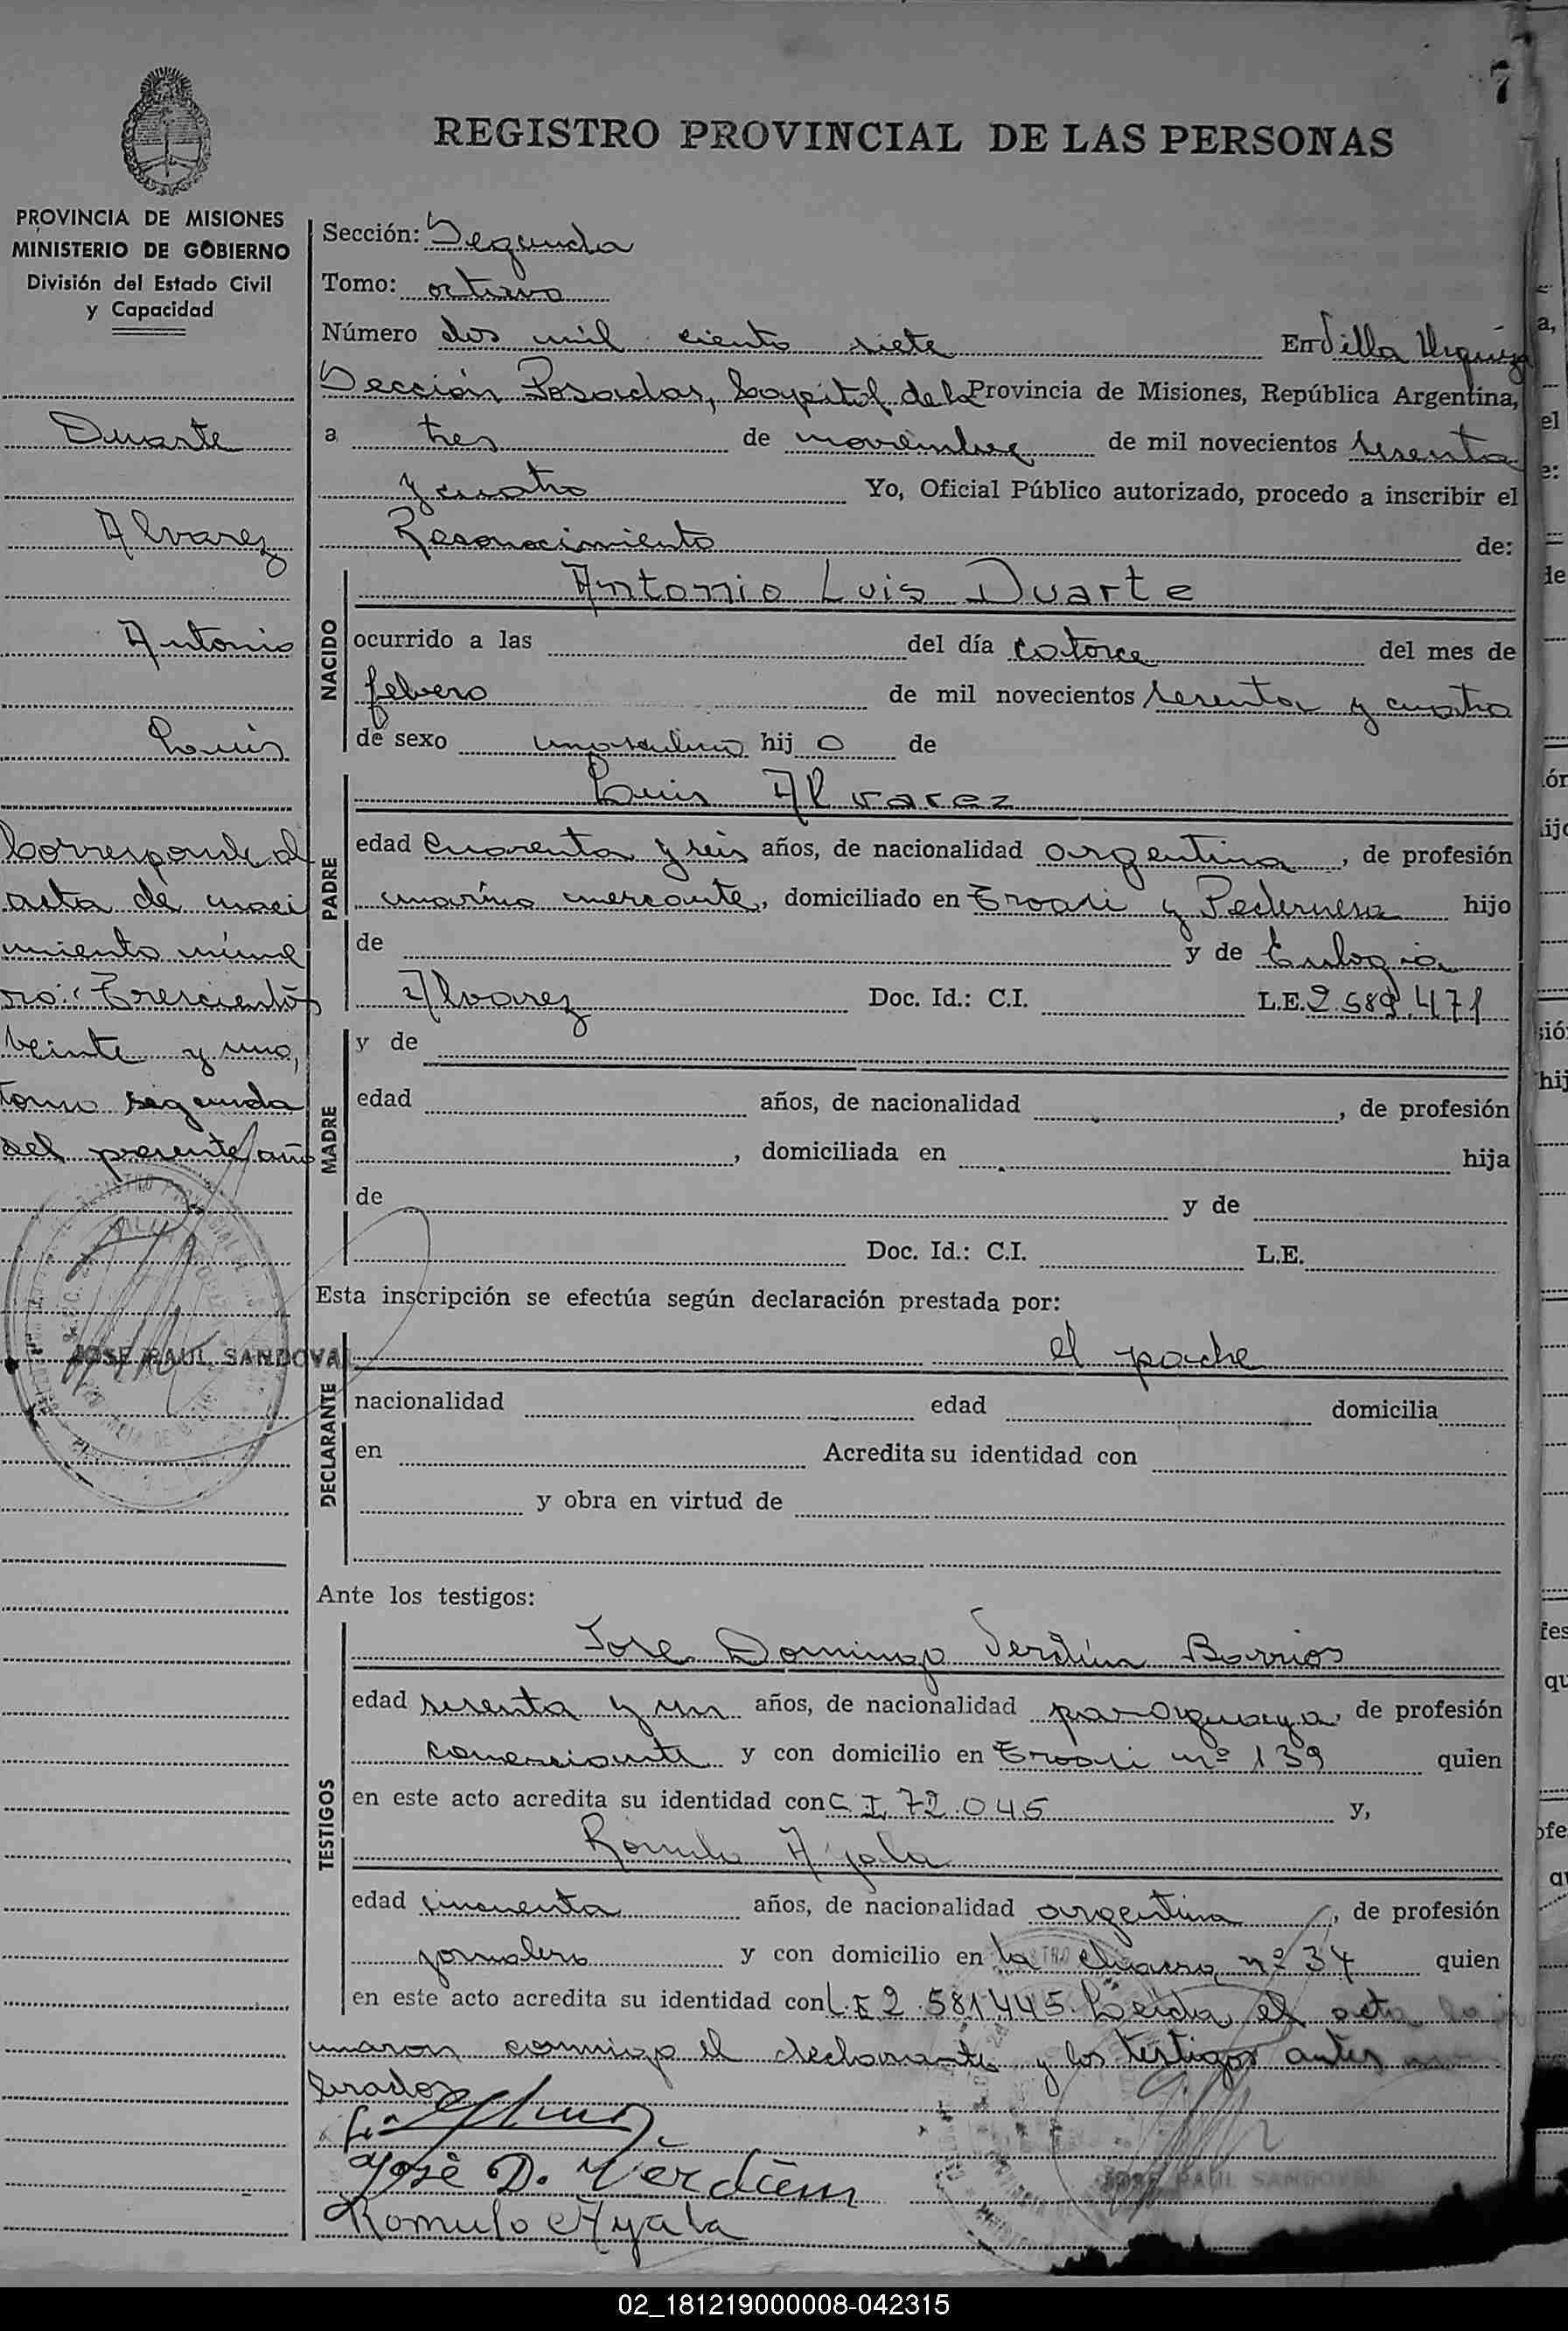 7
REGISTRO PROVINCIAL DE LAS PERSONAS
PROVINCIA DE MISIONES
MINISTERIO DE GOBIERNO
División del Estado Civil
y Capacidad
Duarte
Alvarez
Antonio
Luis
Corresponde al
acta de naci
miento núme
ro: Trescientos
veinte y uno,
tomo segundo
del presente año
JOSE RAUL SANDOVAL
Sección: Segunda
Tomo: octavo
Número dos mil ciento siete En Villa Urquiza
Sección Posadas, Capital de la Provincia de Misiones, República Argentina,
a tres de noviembre de mil novecientos sesenta
y cuatro Yo, Oficial Público autorizado, procedo a inscribir el
Reconocimiento de:
NACIDO
Antonio Luis Duarte
ocurrido a las del día catorce del mes de
febrero de mil novecientos sesenta y cuatro
de sexo masculino hij o de
PADRE
Luis Alvarez
edad cuarenta y seis años, de nacionalidad argentina, de profesión
marino mercante, domiciliado en Eroali y Pedernera hijo
de y de Eulogia
Alvarez Doc. Id.: C.I. L.E. 2.589.471
MADRE
y de
edad años, de nacionalidad , de profesión
, domiciliada en hija
de y de
Doc. Id.: C.I. L.E.
Esta inscripción se efectúa según declaración prestada por:
DECLARANTE
el padre
nacionalidad edad domicilia
en Acredita su identidad con
y obra en virtud de
Ante los testigos:
TESTIGOS
Jose Domingo Verdún Barrios
edad sesenta y un años, de nacionalidad paraguaya, de profesión
comerciante y con domicilio en Eroali nº 139 quien
en este acto acredita su identidad con C I 72.045 y,
Romulo Ayala
edad cincuenta años, de nacionalidad argentina, de profesión
jornalero y con domicilio en la chacra nº 34 quien
en este acto acredita su identidad con L.E 2.581445. Leida el acta
maron conmigo el declarante y los testigos antes
José D. Verdún
JOSE RAUL SANDOVAL
Romulo Ayala
02_181219000008-042315